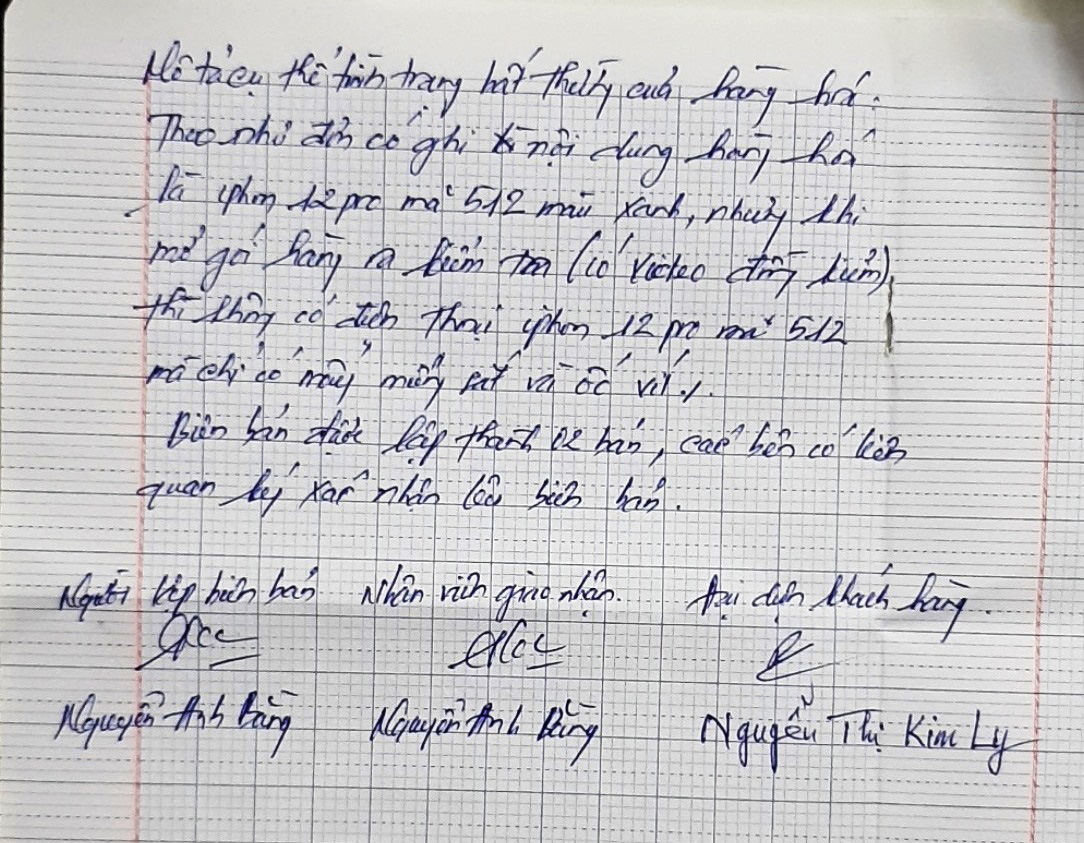 Mô tả cụ thể tình trạng bất thường của hàng hoá.
Theo như đơn có ghi nội dung hàng hoá
là iphon 12 pro mã 512 màu xanh, nhưng khi
mở gói hàng ra kiểm tra (có video đồng kiểm),
thì không có điện thoại iphon 12 pro mã 512
mà chỉ có mấy miếng sắt và ốc vít./.
Biên bản được lập thành 02 bản, các bên có liên
quan ký xác nhận lên biên bản.
Người lập biên bản Nhân viên giao nhận. Đại diện khách hàng.
Nguyễn Anh Bằng Nguyễn Anh Bằng Nguyễn Thị Kim Ly